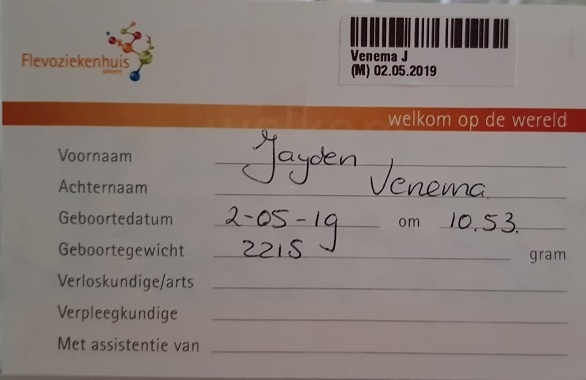 Flevoziekenhuis
almere
Venema J
(M) 02.05.2019
welkom op de wereld
Voornaam Jayden
Achternaam Venema
Geboortedatum 2-05-19 om 10.53.
Geboortegewicht 2215 gram
Verloskundige/arts
Verpleegkundige
Met assistentie van